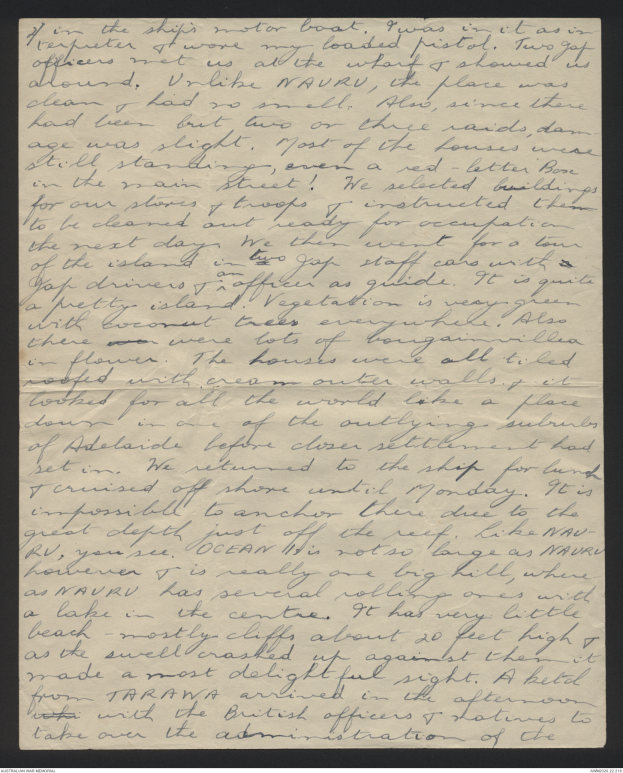 2/ in the ship's motor boat. I was in it as in
terpreter & wore my loaded pistol. Two Jap
officers met us at the wharf & showed us
around. Unlike NAURU, the place was
clean & had no smell. Also, since there
had been but two or three raids, dam-
age was slight. Most of the houses were
still standing, even a red-letter Box
in the main street! We selected buildings
for our stores & troops & instructed them
to be cleaned out ready for occupation
the next day. We then went for a tour
of the island in two Jap staff cars with
Jap drivers & an officer as guide. It is quite
a pretty island. Vegetation is very green
with coconut trees everywhere. Also
there were lots of bougainvillea
in flower. The houses were all tiled
roofed with cream outer walls & it
looked for all the world like a place
down in one of the outlying suburbs
of Adelaide before closer setttlement had
set in. We returned to the ship for lunch
& cruised off shore until Monday. It is
impossible to anchor there due to the
great depth just off the reef. Like NAU-
RU, you see. OCEAN Is is not so large as NAURU
however & is really one big hill, where
as NAURU has several rolling ones with
a lake in the centre. It has very little
beach - mostly cliffs about 20 feet high &
as the swell crashed up against them it
made a most delightful sight. A ketch
from TARAWA arrived in the afternoon
with the British officers & natives to
take over the administration of the
AUSTRALIAN WAR MEMORIAL
AWM2020.22.218